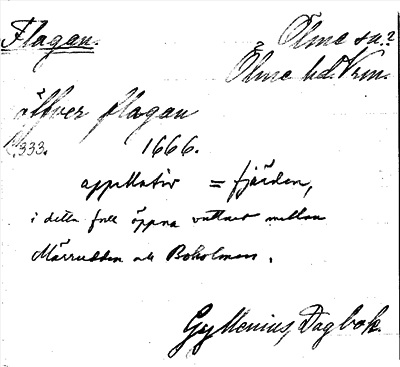 Flagan. Ölme sn.?
Ölme hd. Vrm.
öffver flagan
333. 1666.
appellativ = fjärden,
i detta fall öppna vattnet mellan
och Boholmen.
Gyllenius, Dagbok.